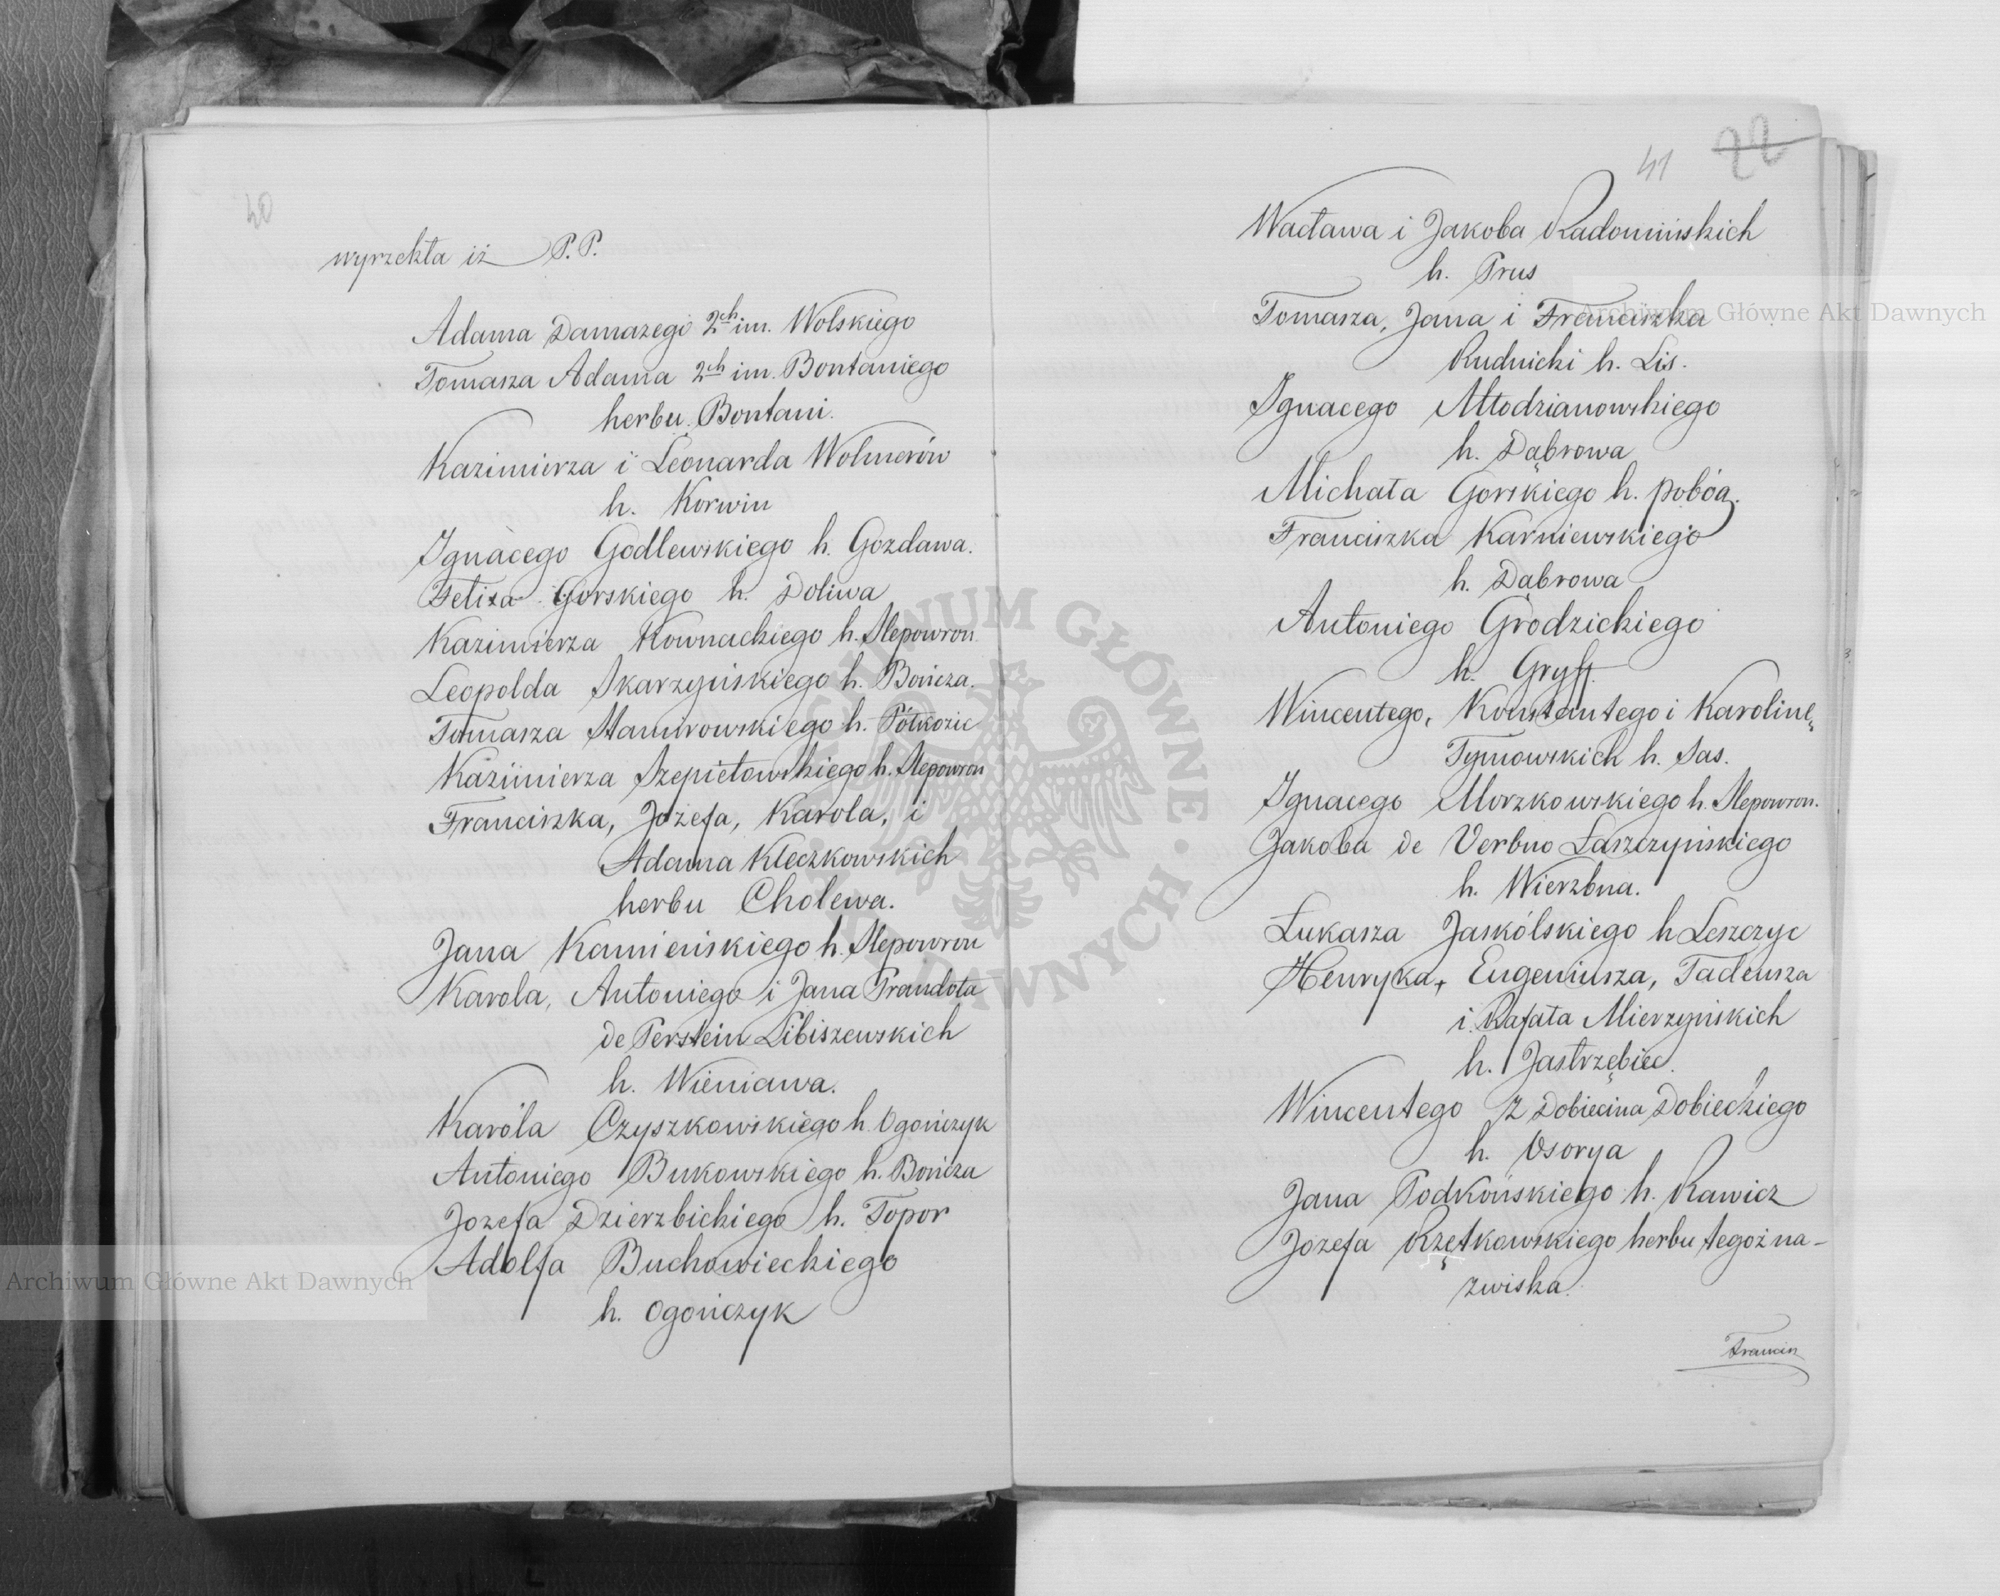 40
wyrzekła iż P.P.
Adama Damazego 2ch im. Wolskiego
Tomasza Adama 2ch im. Bontaniego
herbu Bontani.
Kazimierza i Leonarda Wolmerów
h. Korwin
Ignacego Godlewskiego h. Gozdawa.
Felixa Gorskiego h. Doliwa
Kazimierza Kownackiego h. Slepowron
Leopolda Skarzyńskiego h. Bończa.
Tomasza Stamirowskiego h. Półkozic
Kazimierza Szepietowskiego h. Slepowron
Franciszka, Jozefa, Karola, i
Adama Kleczkowskich
herbu Cholewa.
Jana Kamieńskiego h. Slepowron
Karola, Antoniego i Jana Prandota
de Perstein Libiszewskich
h. Wieniawa.
Karola Czyszkowskiego h. Ogończyk
Antoniego Bukowskiego h. Bończa
Jozefa Dzierzbickiego h. Topor
Adolfa Buchowieckiego
h. Ogończyk
41 22
Wacława i Jakoba Radomińskich
h. Prus
Tomasza, Jana i Franciszka
Rudnicki h. Lis.
Ignacego Młodzianowskiego
h. Dąbrowa
Michała Gorskiego h. pobóg.
Franciszka Karniewskiego
h. Dąbrowa
Antoniego Grodzickiego
h. Gryff.
Wincentego, Konstantego i Karolinę
Tymowskich h. Sas.
Ignacego Morzkowskiego h. Slepowron.
Jakoba de Verbno Łaszczyńskiego
h. Wierzbna.
Łukasza Jaskólskiego h Leszczyc
Henryka, Eugeniusza, Tadeusza
i Rafała Mierzyńskich
h. Jastrzębiec.
Wincentego z Dobiecina Dobieckiego
h. Osorya
Jana Podkońskiego h. Rawicz
Jozefa Rzętkowskiego herbu tegoż na-
zwiska.
Francisz
Archiwum Główne Akt Dawnych
Archiwum Główne Akt Dawnych
ARCHIWUM GŁÓWNE AKT DAWNYCH